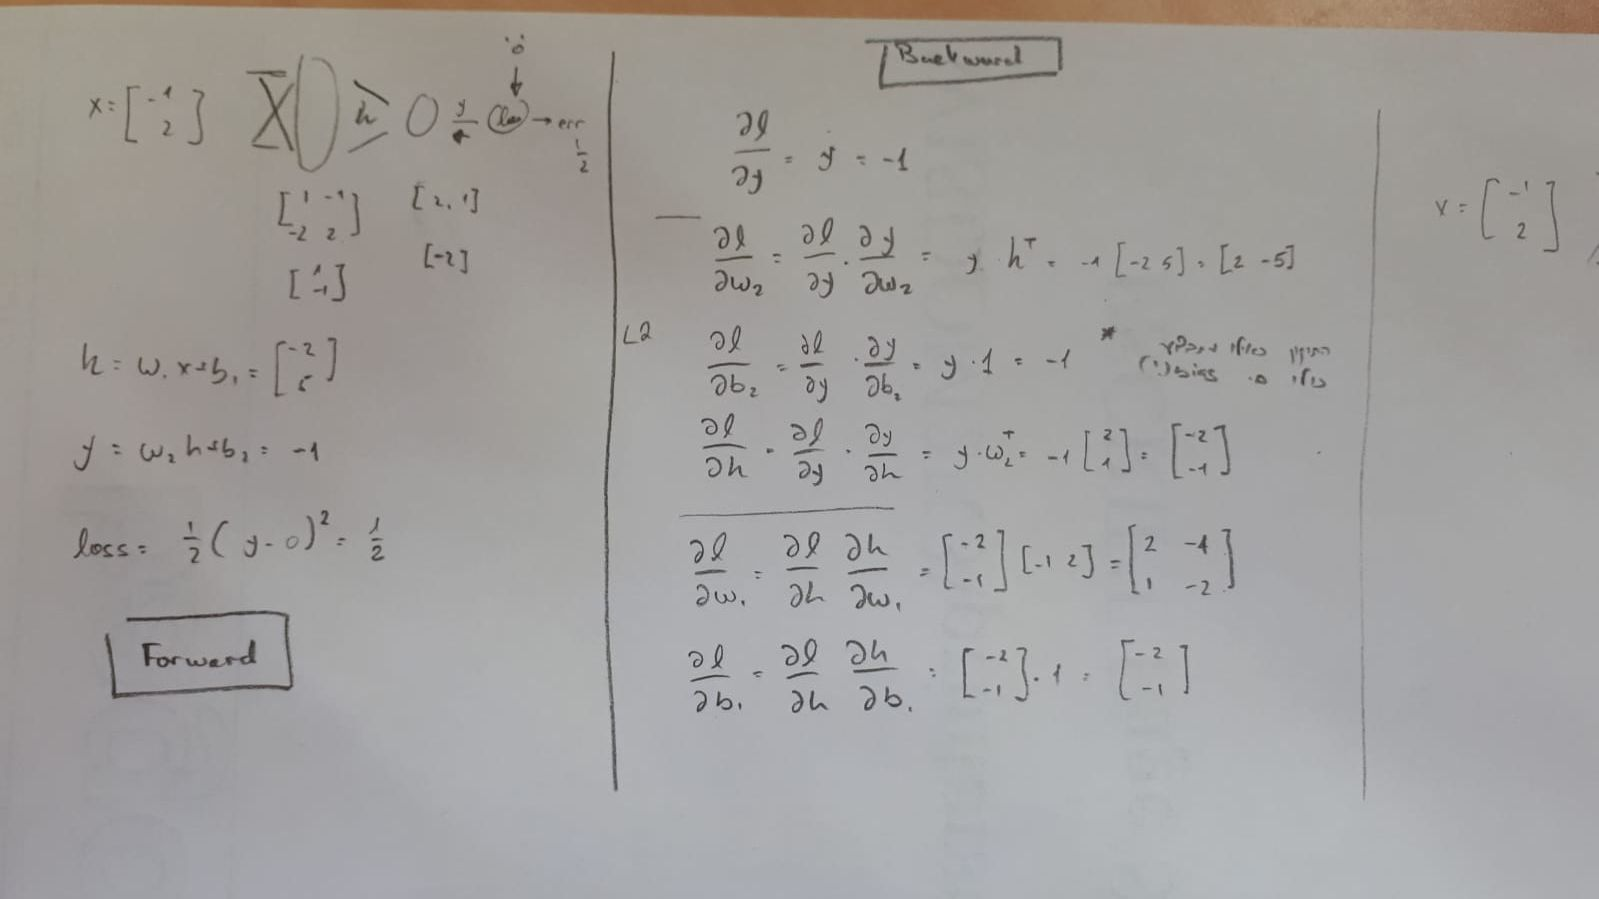 x = [-1 2] X h y loss → err
'0'
1/2
[1 -1 -2 2] [2, 1]
[1 -1] [-2]
h = w₁x+b₁ = [-2 5]
y = w₂h+b₂ = -1
loss = 1/2 (y-0)² = 1/2
Forward
Backward
∂l/∂y = y = -1
∂l/∂w₂ = ∂l/∂y · ∂y/∂w₂ = y · hᵀ = -1 [-2 5] = [2 -5]
L2
∂l/∂b₂ = ∂l/∂y · ∂y/∂b₂ = y · 1 = -1 *
∂l/∂h = ∂l/∂y · ∂y/∂h = y · w₂ᵀ = -1 [2 1] = [-2 -1]
∂l/∂w₁ = ∂l/∂h ∂h/∂w₁ = [-2 -1] [-1 2] = [2 -4 1 -2]
∂l/∂b₁ = ∂l/∂h ∂h/∂b₁ = [-2 -1] · 1 = [-2 -1]
x = [-1 2]